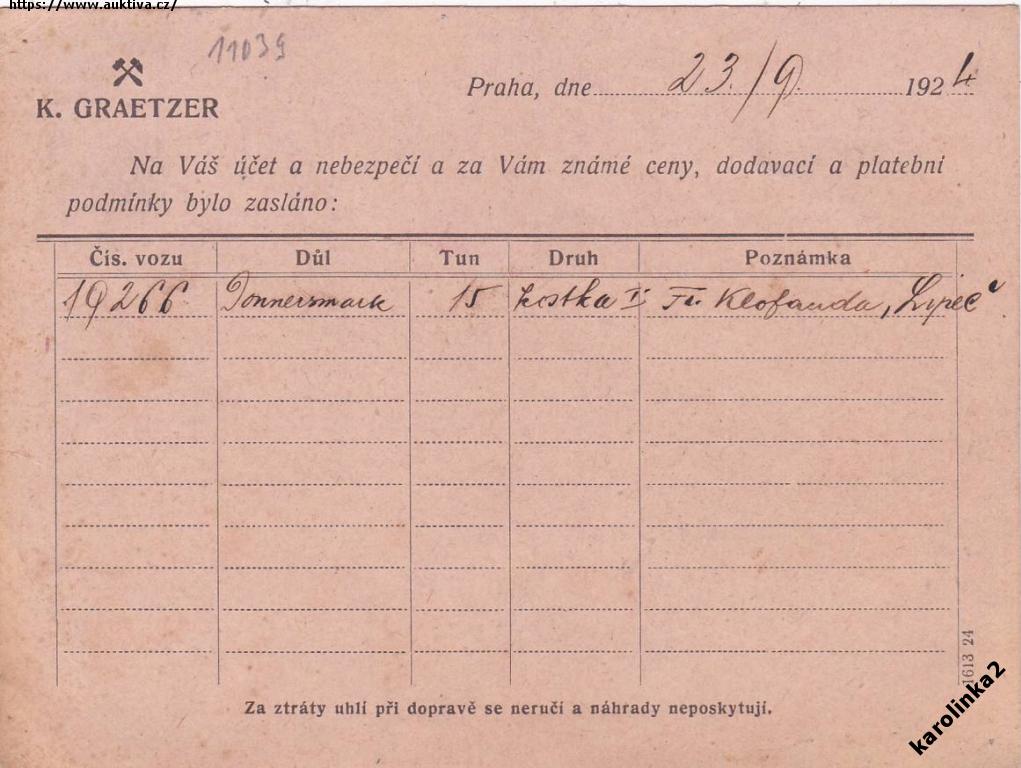 https://www.auktiva.cz/
11039
K. GRAETZER
Praha, dne 23./9. 1924
Na Váš účet a nebezpečí a za Vám známé ceny, dodavací a platební
podmínky bylo zasláno:
Čís. vozu Důl Tun Druh Poznámka
19266 Donnersmark 15 kostka I Fr. Klofanda, Lipec
1613 24
Za ztráty uhlí při dopravě se neručí a náhrady neposkytují.
karolinka2